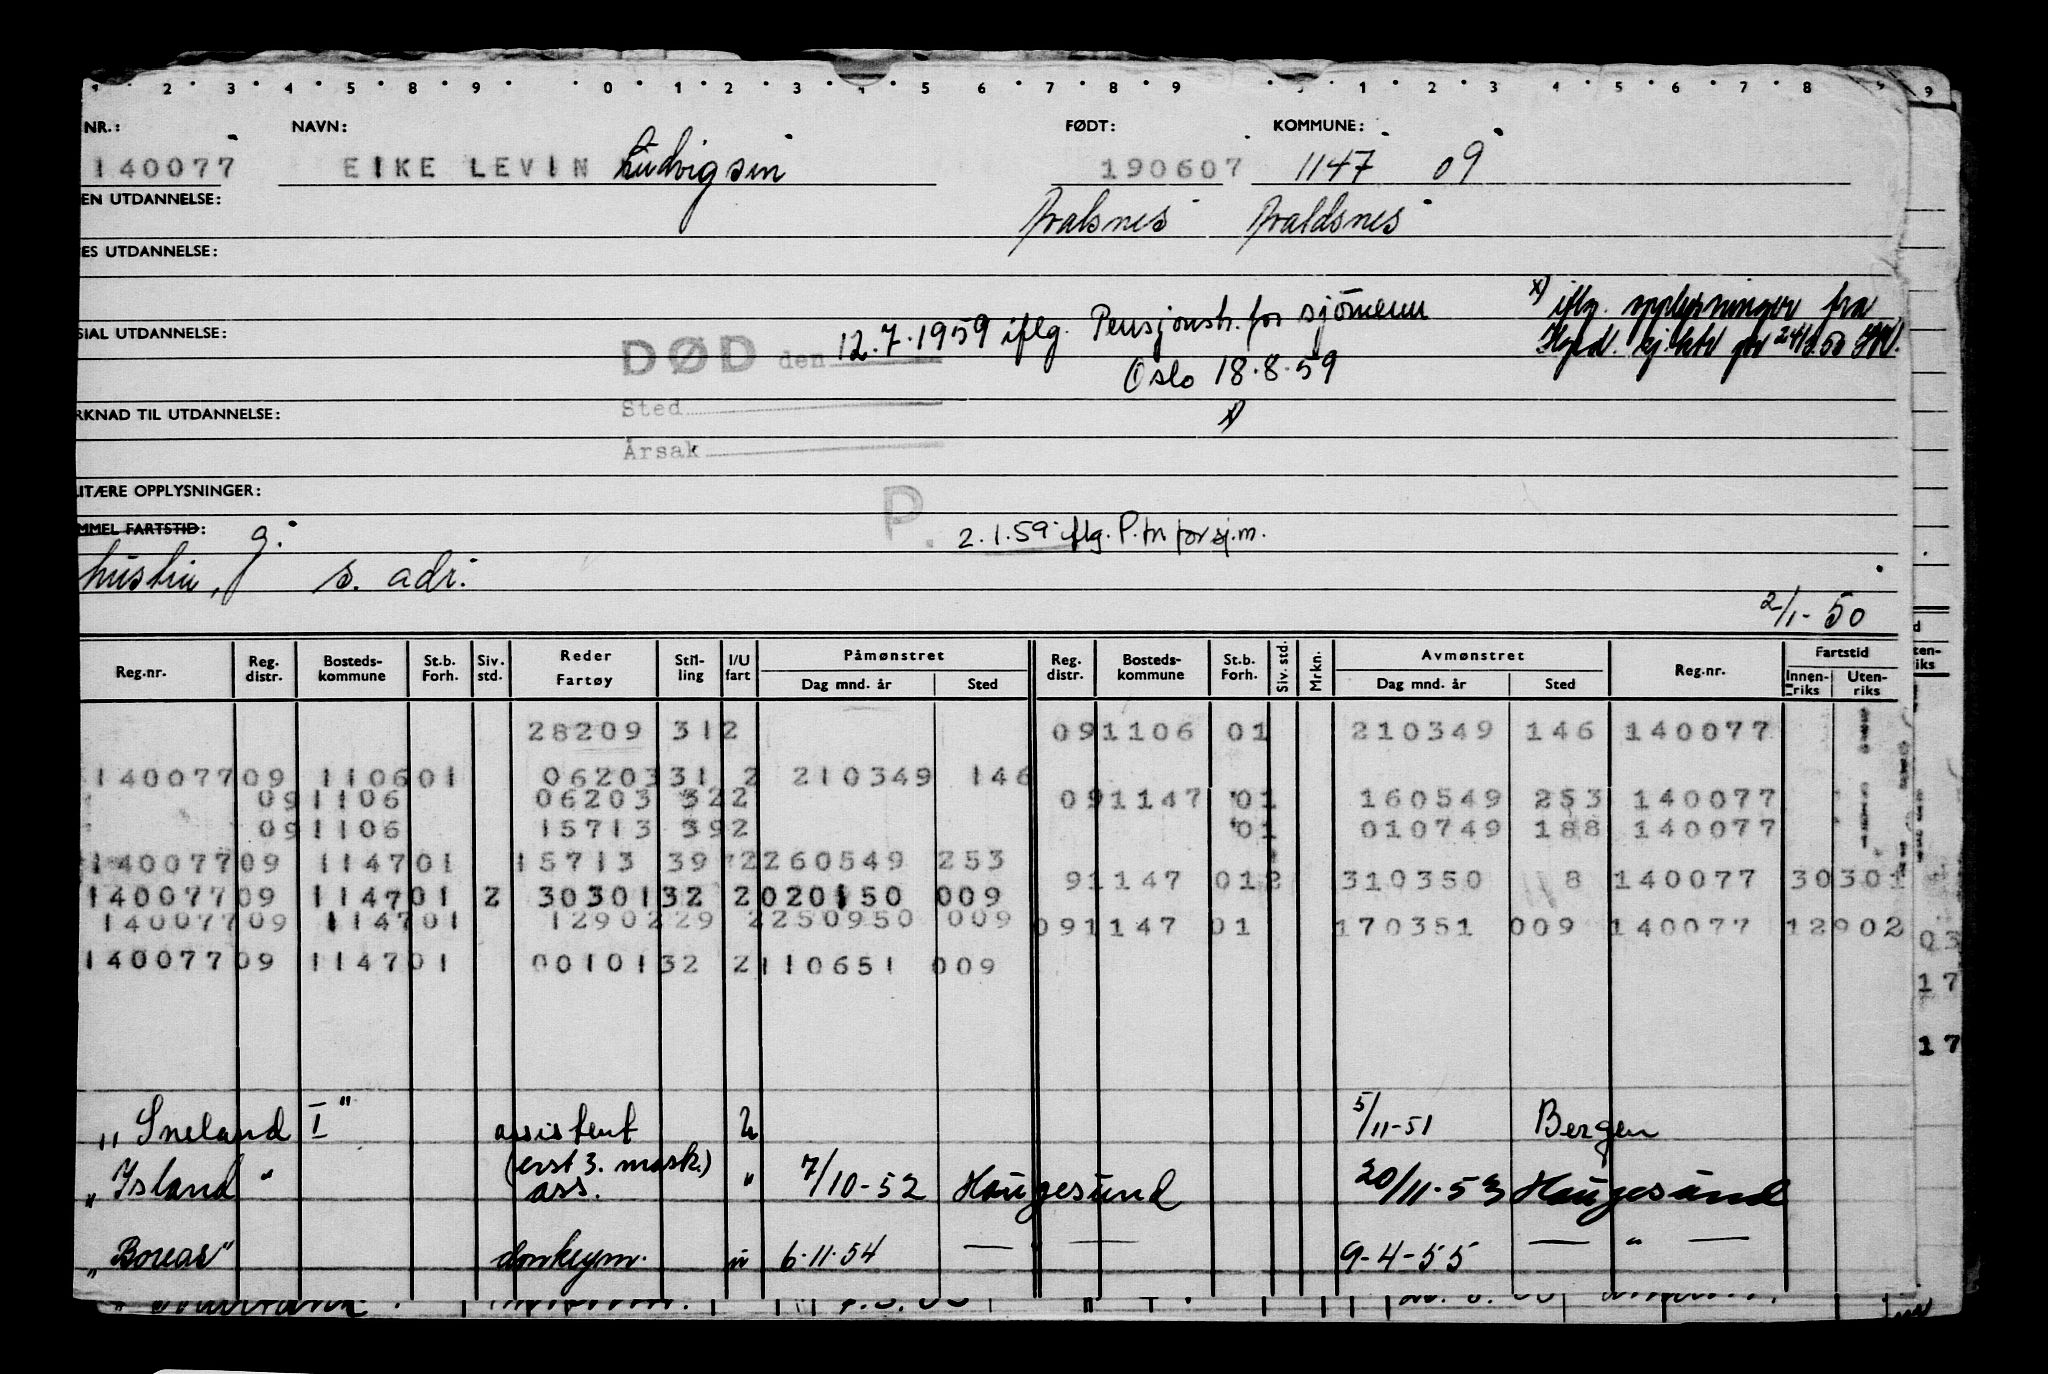 1 2 3 4 5 8 9 0 1 2 3 4 5 6 7 8 9 1 2 3 4 5 6 7 8 9
NR.: NAVN: FØDT: KOMMUNE:
140077 EIKE LEVIN Ludvigsen 190607 1147 09
EN UTDANNELSE: Avalsnes Avaldsnes
ES UTDANNELSE:
x) iflg. opplysninger fra
SIAL UTDANNELSE: DØD den 12.7.1959 iflg. Pensjonstr. for sjömenn
Oslo 18.8.59
Sted x)
RKNAD TIL UTDANNELSE:
Årsak
ITÆRE OPPLYSNINGER:
MMEL FARTSTID: g. P. 2.1.59 iflg. P.tr. for sj.m.
hustru, s. adr.
2/1-50
Reg.nr. Reg. distr. Bosteds-kommune St.b. Forh. Siv. std. Reder Fartøy Stil-ling I/U fart Påmønstret Dag mnd. år Sted Reg. distr. Bosteds-kommune St.b. Forh. Siv. std. Mrkn. Avmønstret Dag mnd. år Sted Reg.nr. Fartstid Innen-riks Uten-riks
28209 312 091106 01 210349 146 140077
140077 09 1106 01 06203 31 2 210349 146
091106 06203 322 091147 01 160549 253 140077
091106 15713 392 01 010749 188 140077
140077 09 1147 01 15713 39 2 260549 253
91147 012 310350 8 140077 30301
140077 09 1147 01 2 30301 32 2 020150 009
140077 09 1147 01 12902 29 2 250950 009 091147 01 170351 009 140077 12902
03
140077 09 1147 01 00101 32 2 110651 009
17
17
"Sneland I" assistent U 5/11-51 Bergen
(erst 3. mask.)
"Island" ass. " 7/10-52 Haugesund 20/11-53 Haugesund
"Boreas" donkeym. u 6.11.54 — " — 9-4-55 — " —